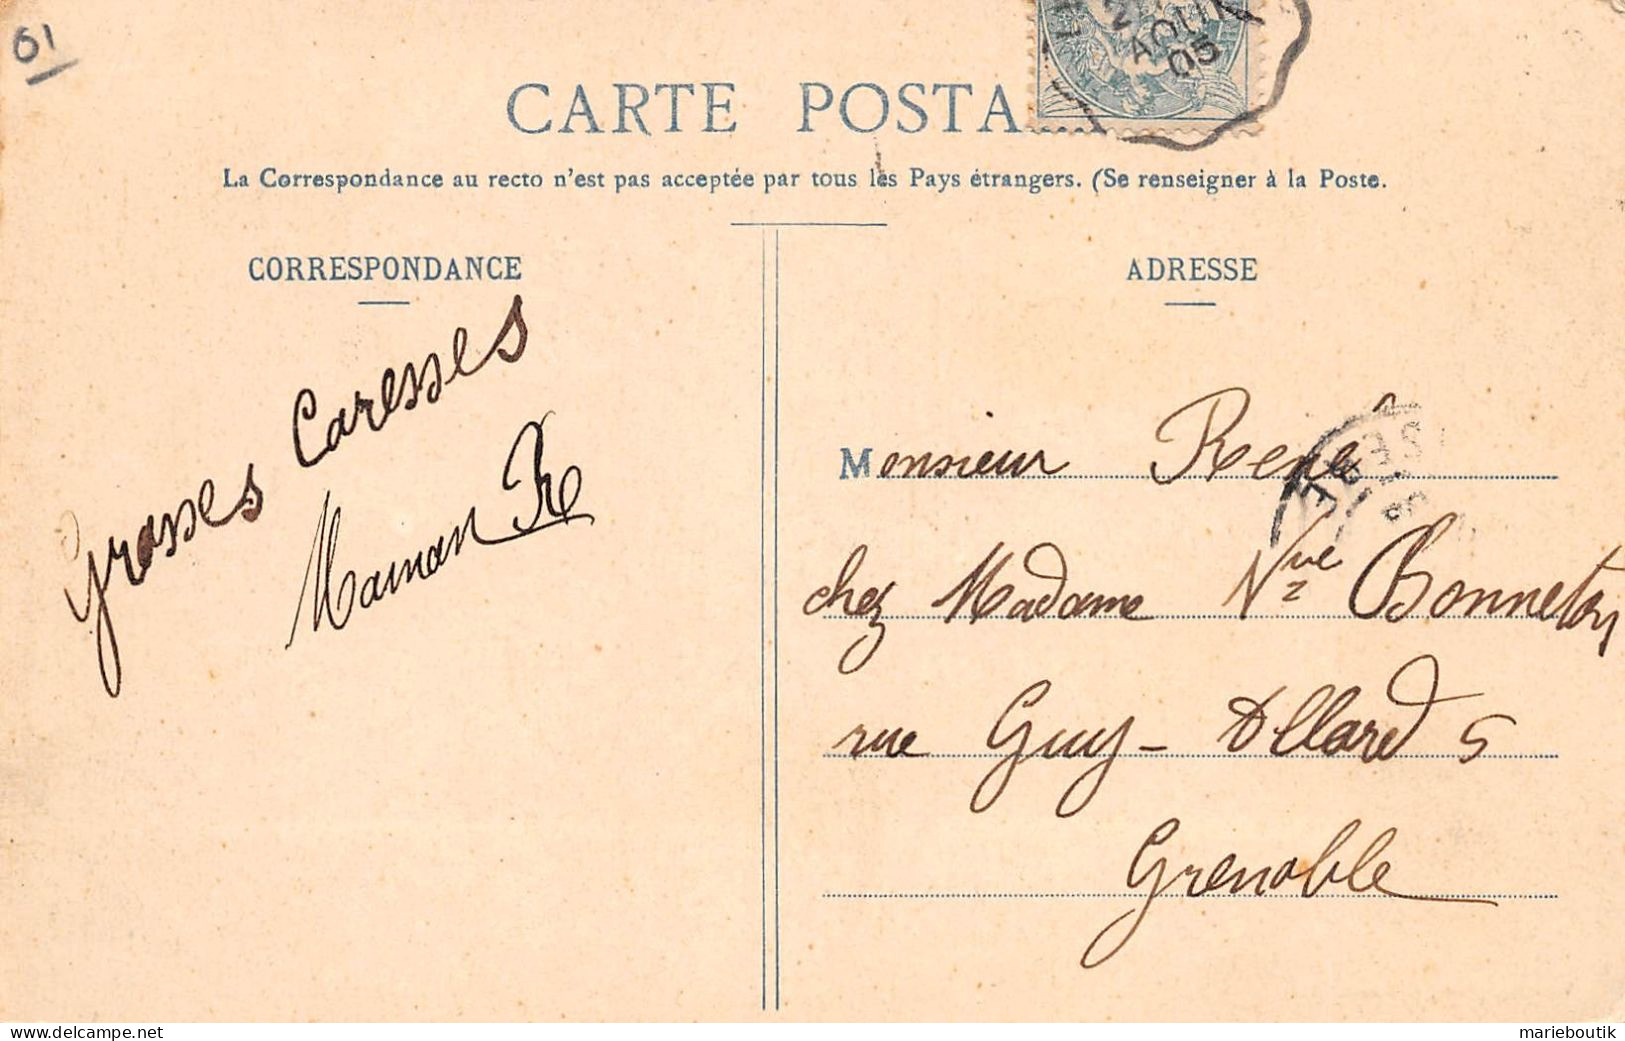 61
AOUT
05
CARTE POSTA
La Correspondance au recto n'est pas acceptée par tous les Pays étrangers. (Se renseigner à la Poste.
CORRESPONDANCE
Grosses Caresses
Maman R
ADRESSE
Monsieur René
chez Madame Vve Bonneton
rue Guy-Allard 5
Grenoble
marieboutik
Delcampe.net